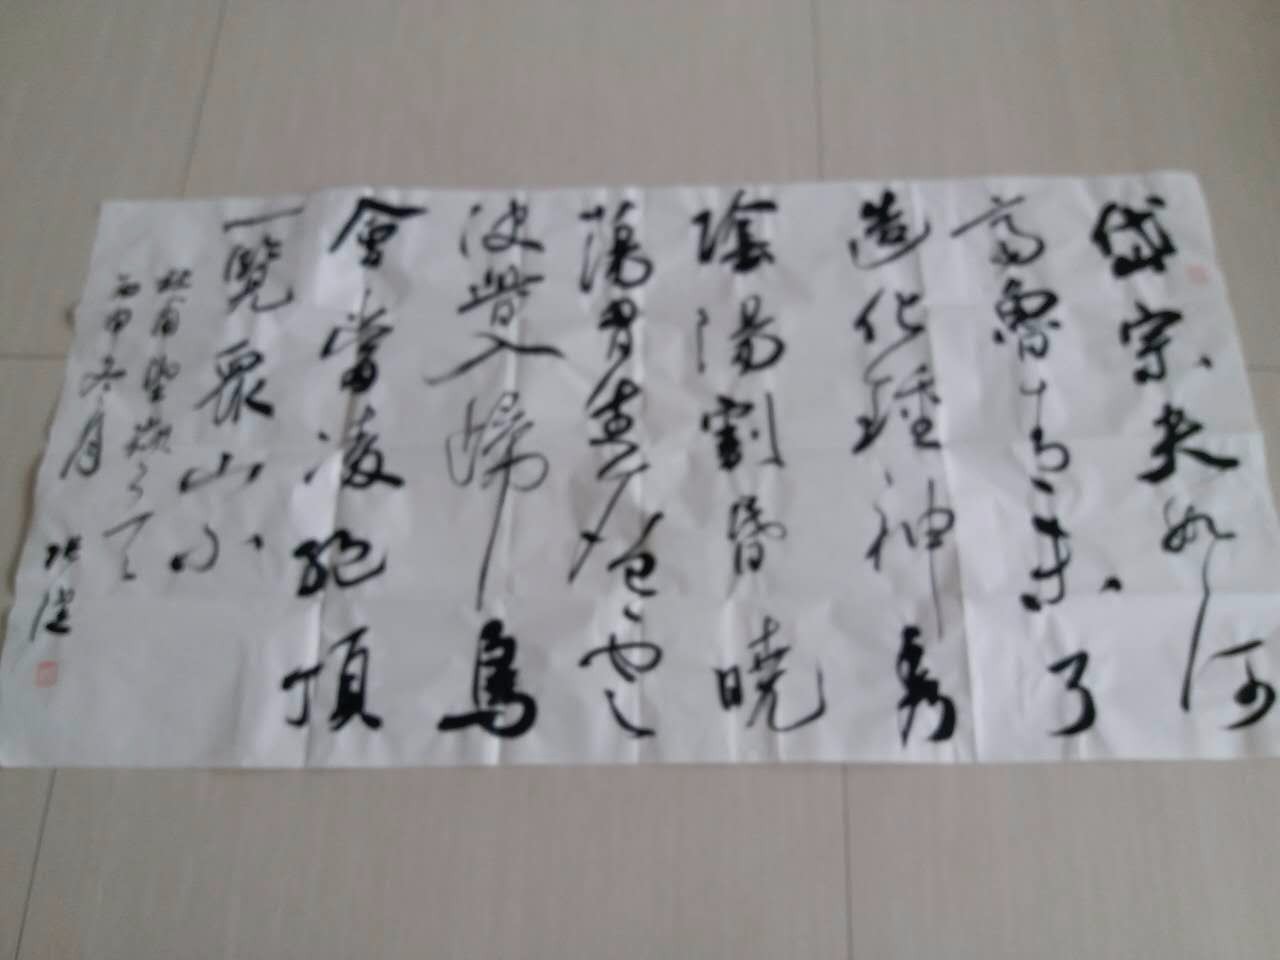 岱宗夫如何
齊魯青未了
造化鍾神秀
陰陽割昏曉
蕩胸生層雲
決眥入歸鳥
會當凌絕頂
一覽眾山小
杜甫望嶽
丙申冬月